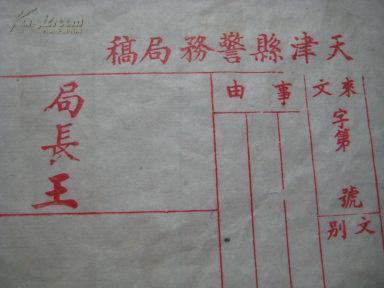 天津縣警務局稿
來文
字第 號
文别
事由
局長王